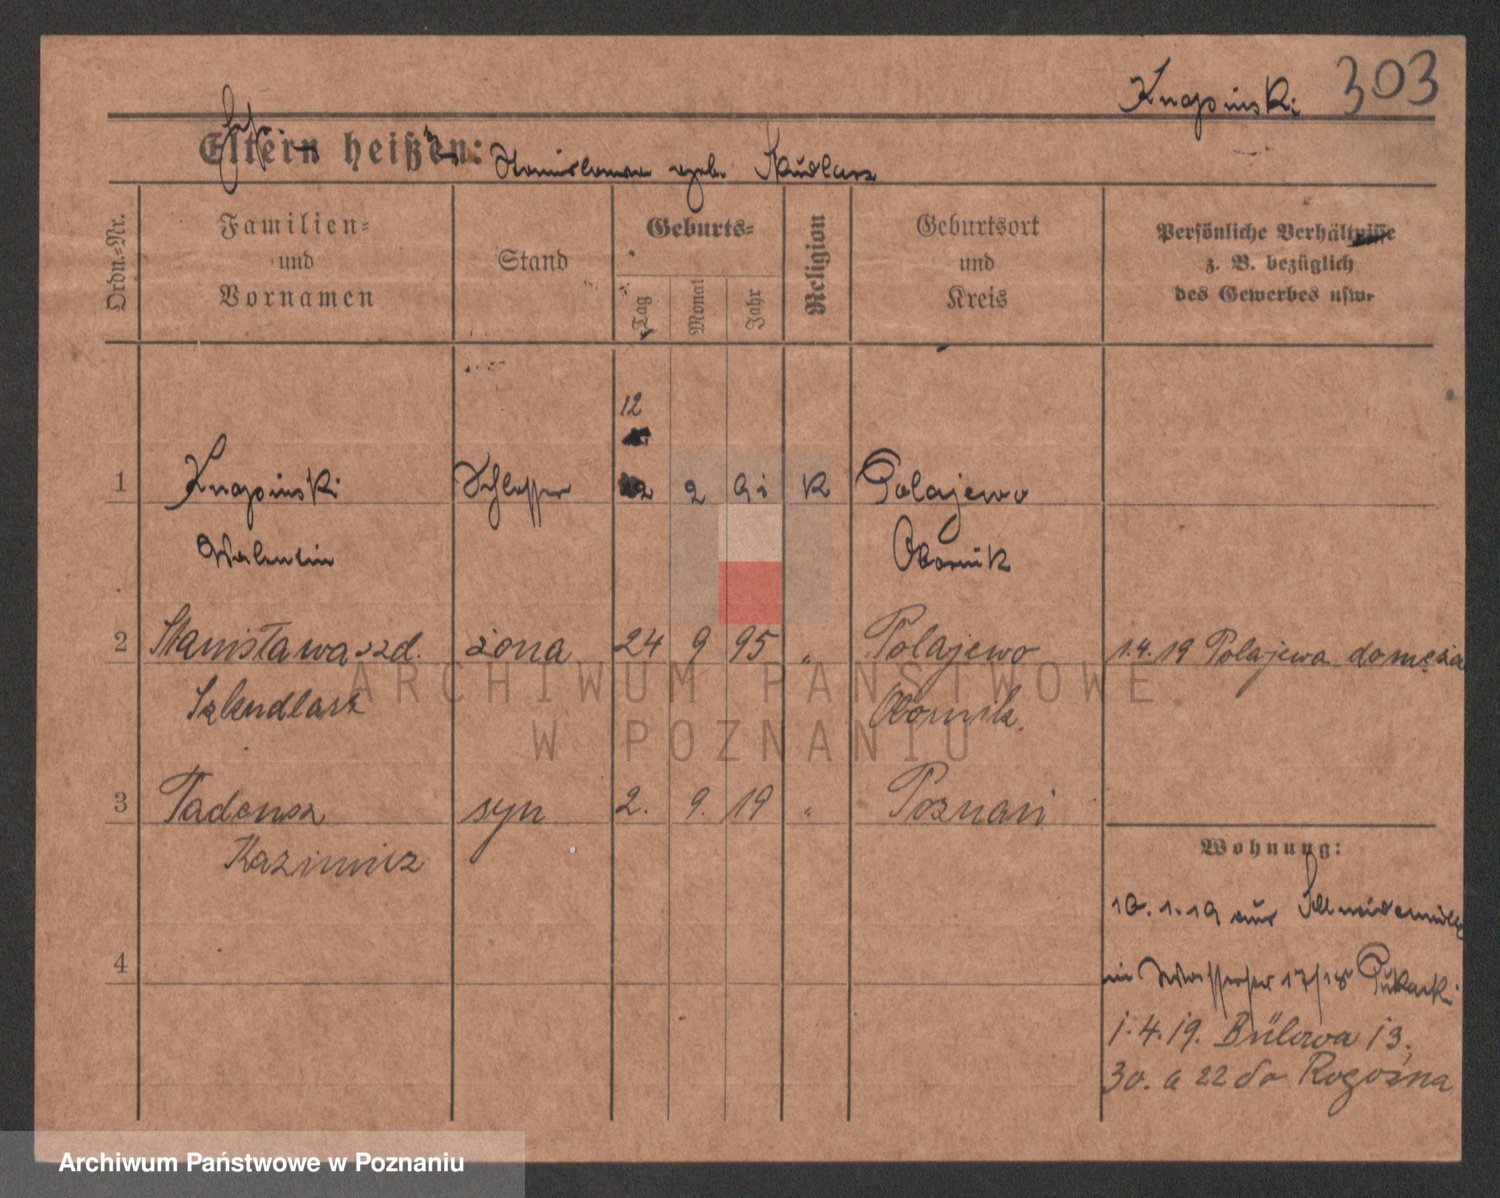 Knapinski 303
Eltern heißen: Stanislawa geb. Skudlarz
Ordn.-Nr.
Familien-
und
Vornamen
Stand
Geburts-
Tag
Monat
Jahr
Religion
Geburtsort
und
Kreis
Persönliche Verhältnisse
z. B. bezüglich
des Gewerbes usw.
12
1 Knapinski Schlosser 2 91 K Polajewo
Walentin Obornik
2 Stanisława zd. żona 24 9 95 „ Polajewo 1.4.19 Polajewa do męża
Szkudlarz Obornik.
3 Tadeusz syn 2. 9. 19 „ Poznań
Kazimierz
Wohnung:
10.1.19 aus Schneidemühl
4
in Wasserstr 17/18
1.4.19. Bülowa 13.
30. 6 22 do Rogoźna
ARCHIWUM PAŃSTWOWE
W POZNANIU
Archiwum Państwowe w Poznaniu